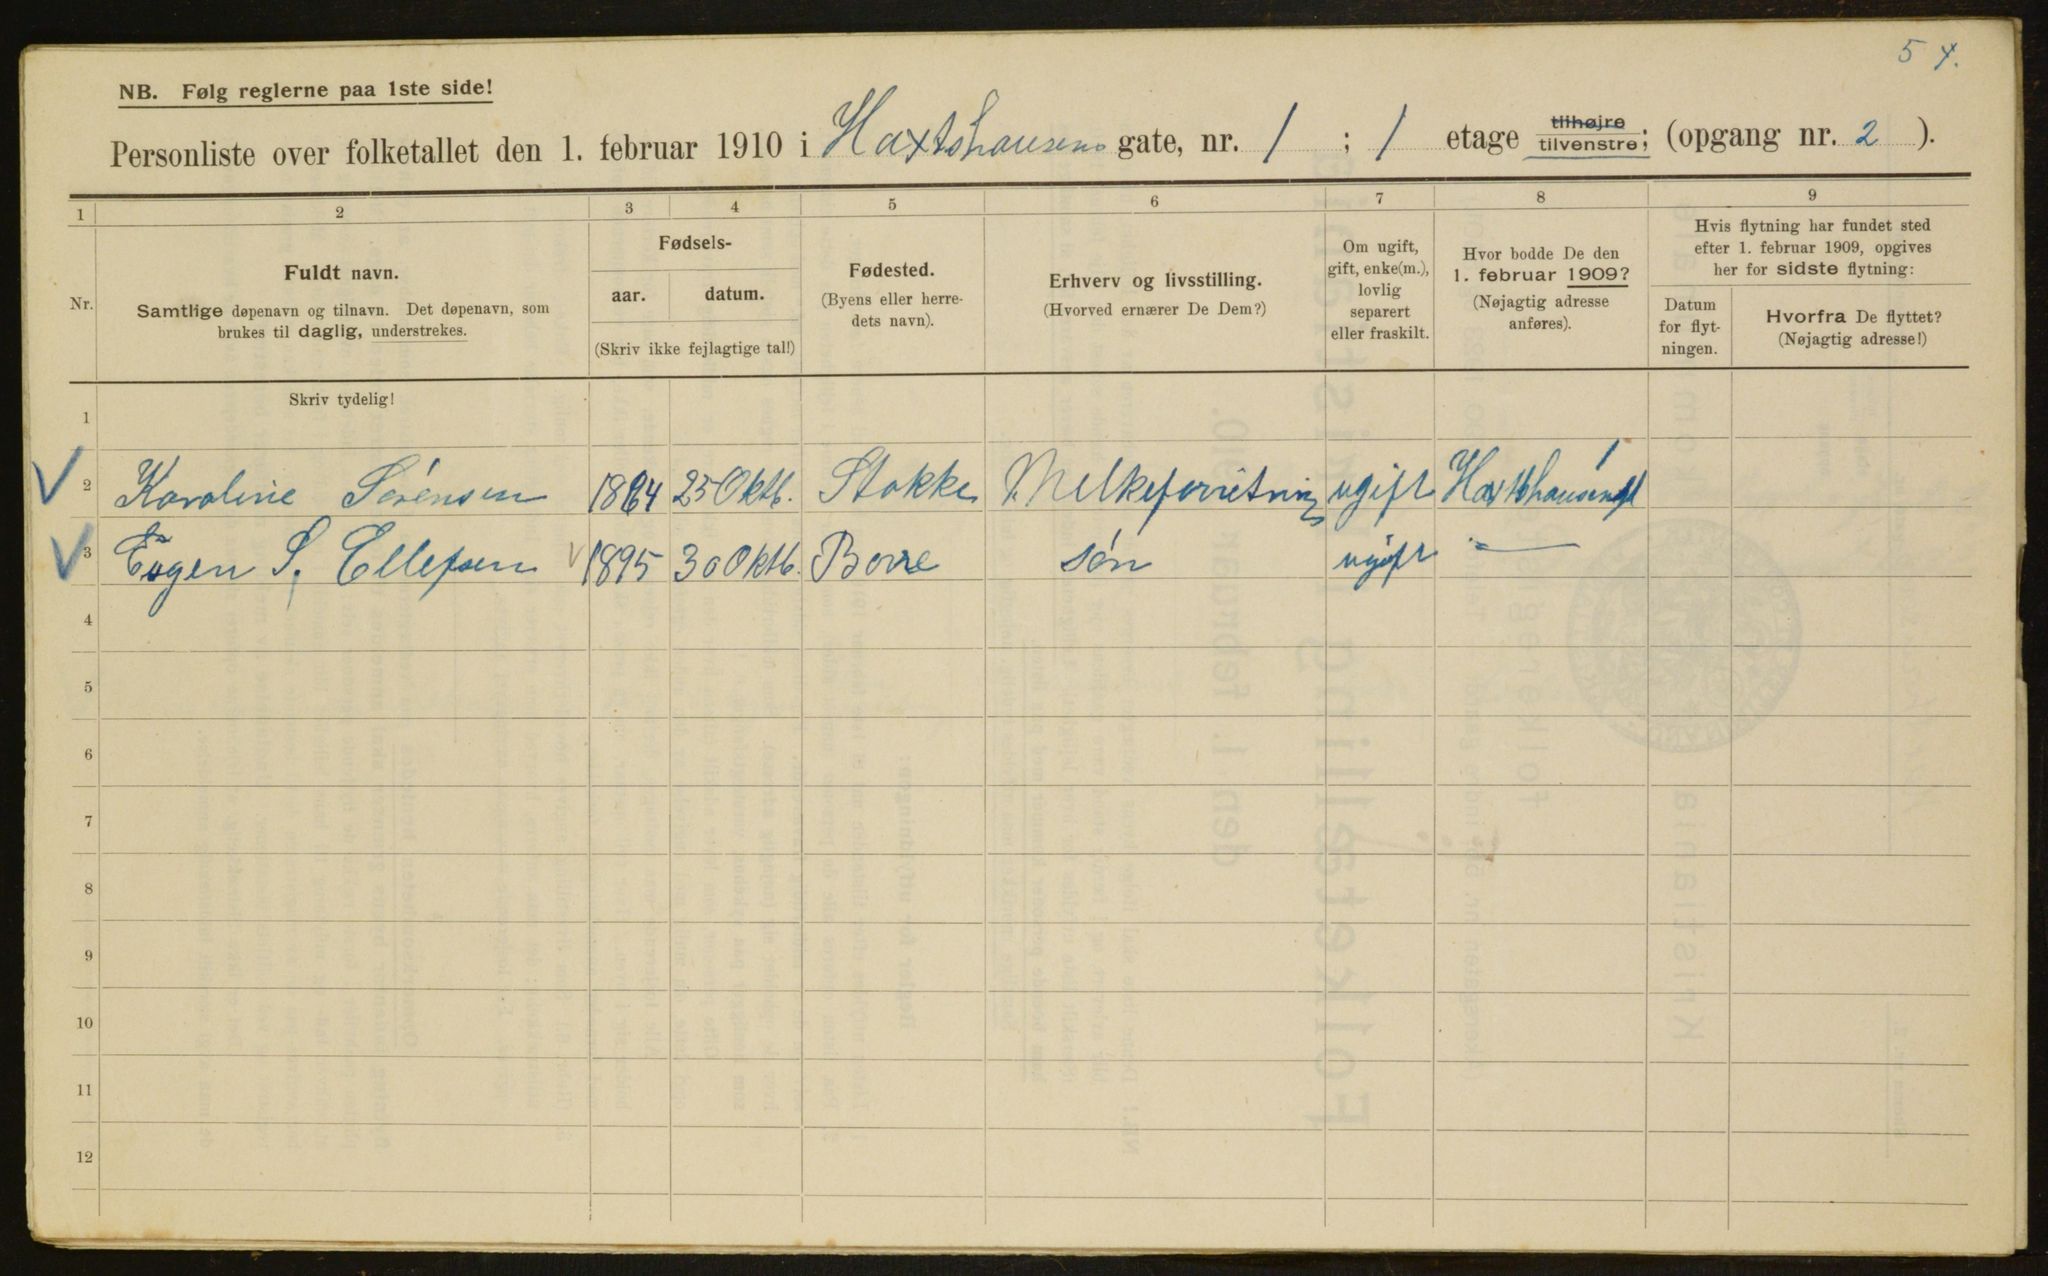 5 4.
NB. Følg reglerne paa 1ste side!
Personliste over folketallet den 1. februar 1910 i Haxtshausens gate, nr. 1 ; 1 etage tilhøjre tilvenstre; (opgang nr. 2 ).
1 2 3 4 5 6 7 8 9
Nr.
Fuldt navn.
Samtlige døpenavn og tilnavn. Det døpenavn, som
brukes til daglig, understrekes.
Fødsels-
aar. datum.
(Skriv ikke fejlagtige tal!)
Fødested.
(Byens eller herre-
dets navn).
Erhverv og livsstilling.
(Hvorved ernærer De Dem?)
Om ugift,
gift, enke(m.),
lovlig
separert
eller fraskilt.
Hvor bodde De den
1. februar 1909?
(Nøjagtig adresse
anføres).
Hvis flytning har fundet sted
efter 1. februar 1909, opgives
her for sidste flytning:
Datum
for flyt-
ningen.
Hvorfra De flyttet?
(Nøjagtig adresse!)
Skriv tydelig!
1
2 Karoline Sørensen 1864 25 Oktb. Stokke Melkeforretning ugift Haxthausengt 1
3 Eugen S. Ellefsen 1895 30 Oktb. Borre søn ugift —
4
5
6
7
8
9
10
11
12